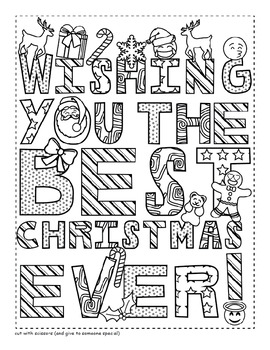 WISHING
YOU THE
BEST
CHRISTMAS
EVER!
cut with scissors (and give to someone special)